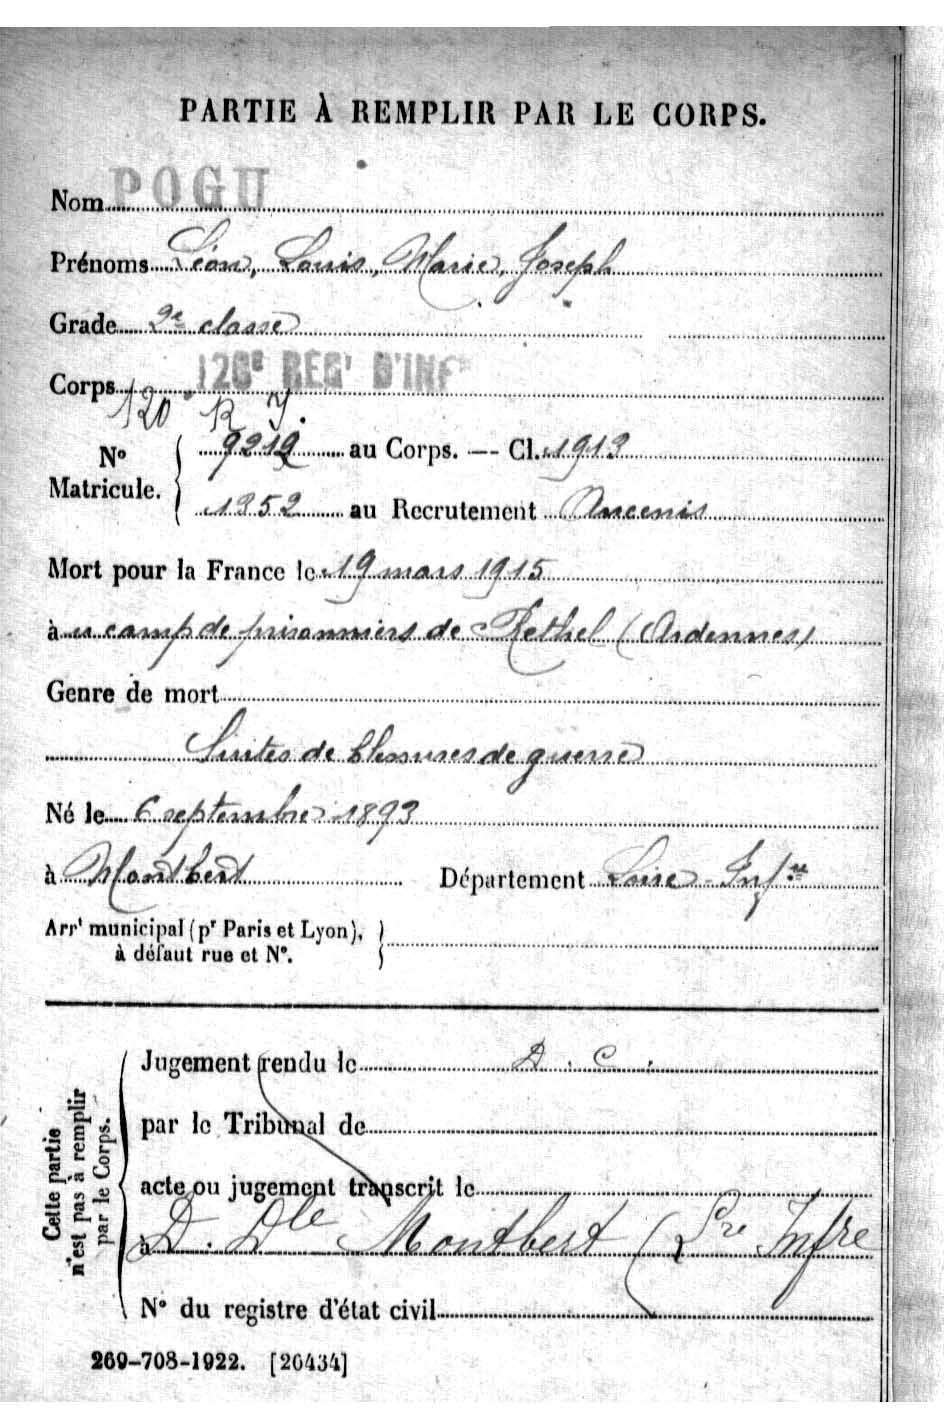 PARTIE À REMPLIR PAR LE CORPS.
Nom POGU
Prénoms Léon, Louis, Marie, Joseph
Grade 2e classe
Corps 120E REGt D'INF
120 R I.
No Matricule. 9212 au Corps. — Cl. 1913
1352 au Recrutement Ancenis
Mort pour la France le 19 mars 1915
à u camp de prisonniers de Rethel (Ardennes)
Genre de mort
Suites de blessures de guerre
Né le 6 septembre 1893
à Montbert Département Loire-Infre
Arrt municipal (pr Paris et Lyon),
à défaut rue et No.
Cette partie
n'est pas à remplir
par le Corps.
Jugement rendu le D. C.
par le Tribunal de
acte ou jugement transcrit le
à D. Dle Montbert (Lre Infre
No du registre d'état civil
269-708-1922. [26434]